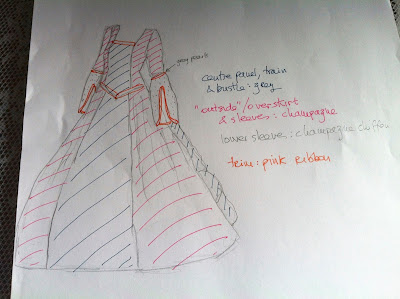 grey pearls
centre panel, train
& bustle : grey
"outside"/overskirt
& sleeves : champagne
lower sleeve : champagne chiffon
trim : pink ribbon